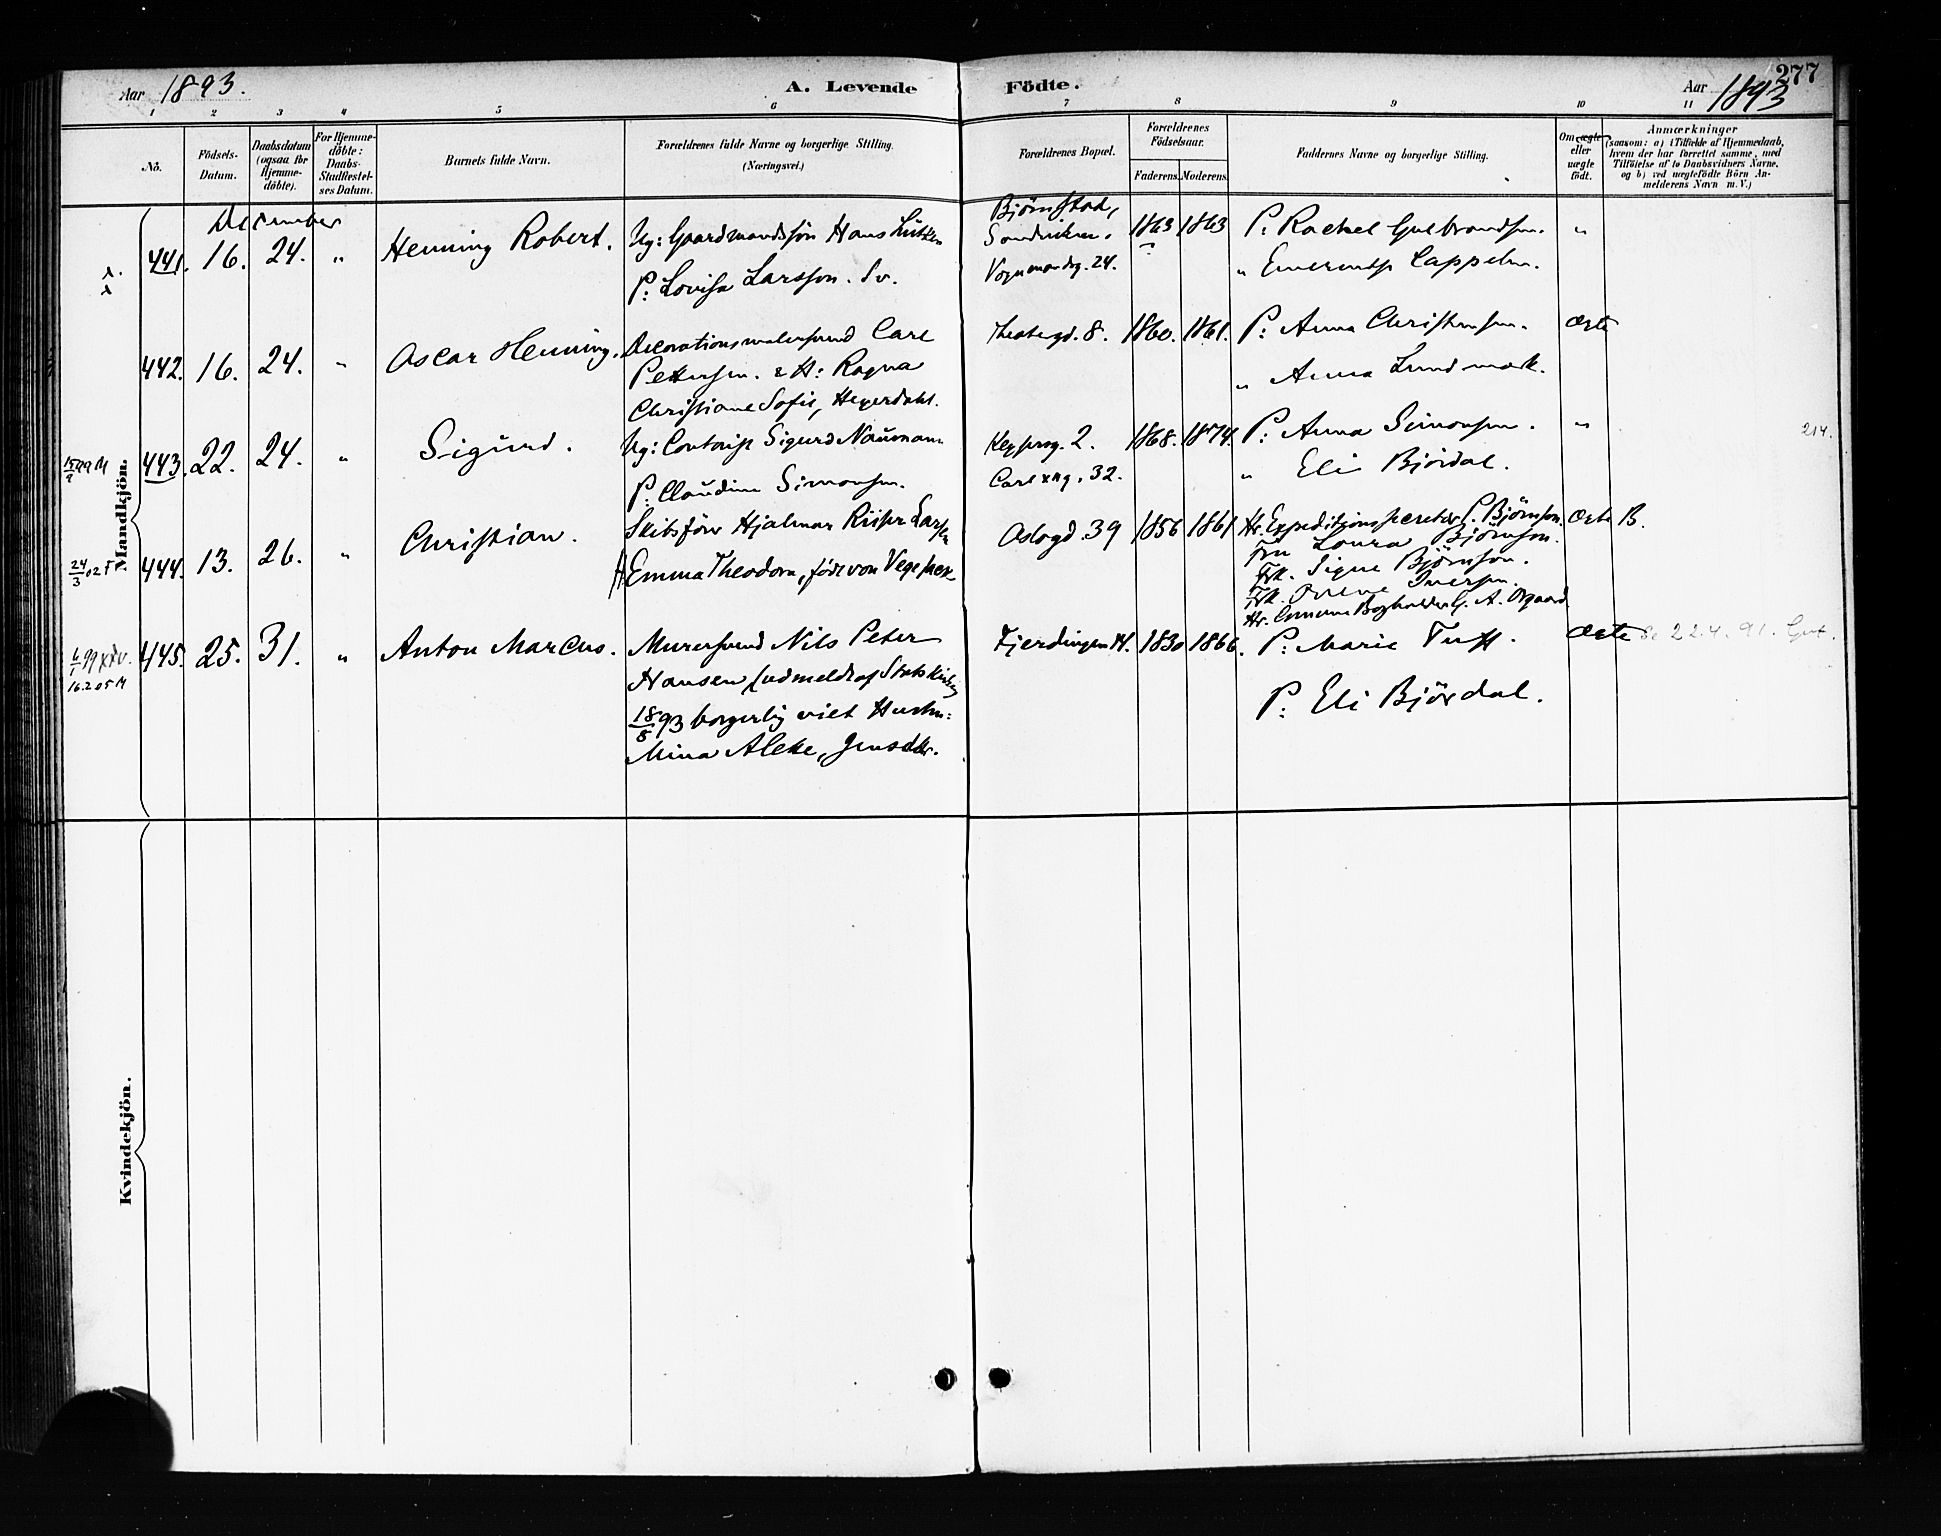 Aar 1893. A. Levende Födte. Aar 1893 277
1 2 3 4 5 6 7 8 9 10 11
No. Födsels-Datum. Daabsdatum (ogsaa for Hjemme-döbte). For Hjemme-döbte: Daabs-Stadfæstel-ses Datum. Barnets fulde Navn. Forældrenes fulde Navne og borgerlige Stilling. (Næringsvei.) Forældrenes Bopæl. Forældrenes Födselsaar. Faderens. Moderens. Faddernes Navne og borgerlige Stilling. Om ægte eller uægte födt. Anmærkninger (saasom: a) i Tilfælde af Hjemmedaab, hvem der har forrettet samme, med Tilföielse af to Daabsvidners Navne, og b) ved uægtefödte Börn An-melderens Navn m. V.)
Mandkjön.
December
441. 16. 24. " Henning Robert. Ug: Gaardmandssön Hans Lütken
P: Lovisa Larsson. Sv.
Björnstad,
Sandviken.
Vognmandsg. 24.
1863 1863 P: Rachel Gulbrandsen. "
" Cappelen.
442. 16. 24. " Oscar Henning. Decorationsmalersvend Carl
Pettersen. & H: Ragna
Christiane Sofie, Heyerdahl.
Theatergd. 8. 1860. 1861. P: Anna Christensen. ægte
" Anna Lundmark.
15/9 99 M 443. 22. 24. " Sigurd. Ug: Contorist Sigurd Naumann
P: Claudine Simonsen.
Keysersg. 2.
Carl XII g. 32.
1868. 1874. P: Anna Simonsen. " 214.
" Eli Björdal.
24/3 02 F 444. 13. 26. " Christian. Skibsförer Hjalmar Riiser Larsen
H Emma Theodora, födt von Vegesack
Oslogd. 39 1856 1861 Hr. Expeditionssecretær P. Björnson. ægte B.
Fru Laura Björnson.
Frk. Signe Björnson.
Frk. Iversen.
445. 25. 31. " Anton Marcus. Murersvend Nils Peter
Hansen (udmeldt af Statskirken
18/8 93 borgerlig viet Hustru:
Mina Alette, Jensdtr.
16.2.05 M
Fjerdingen 14. 1830 1866. P: Marie Tufft. ægte 22.4.91.
P: Eli Björdal.
Kvindekjön.